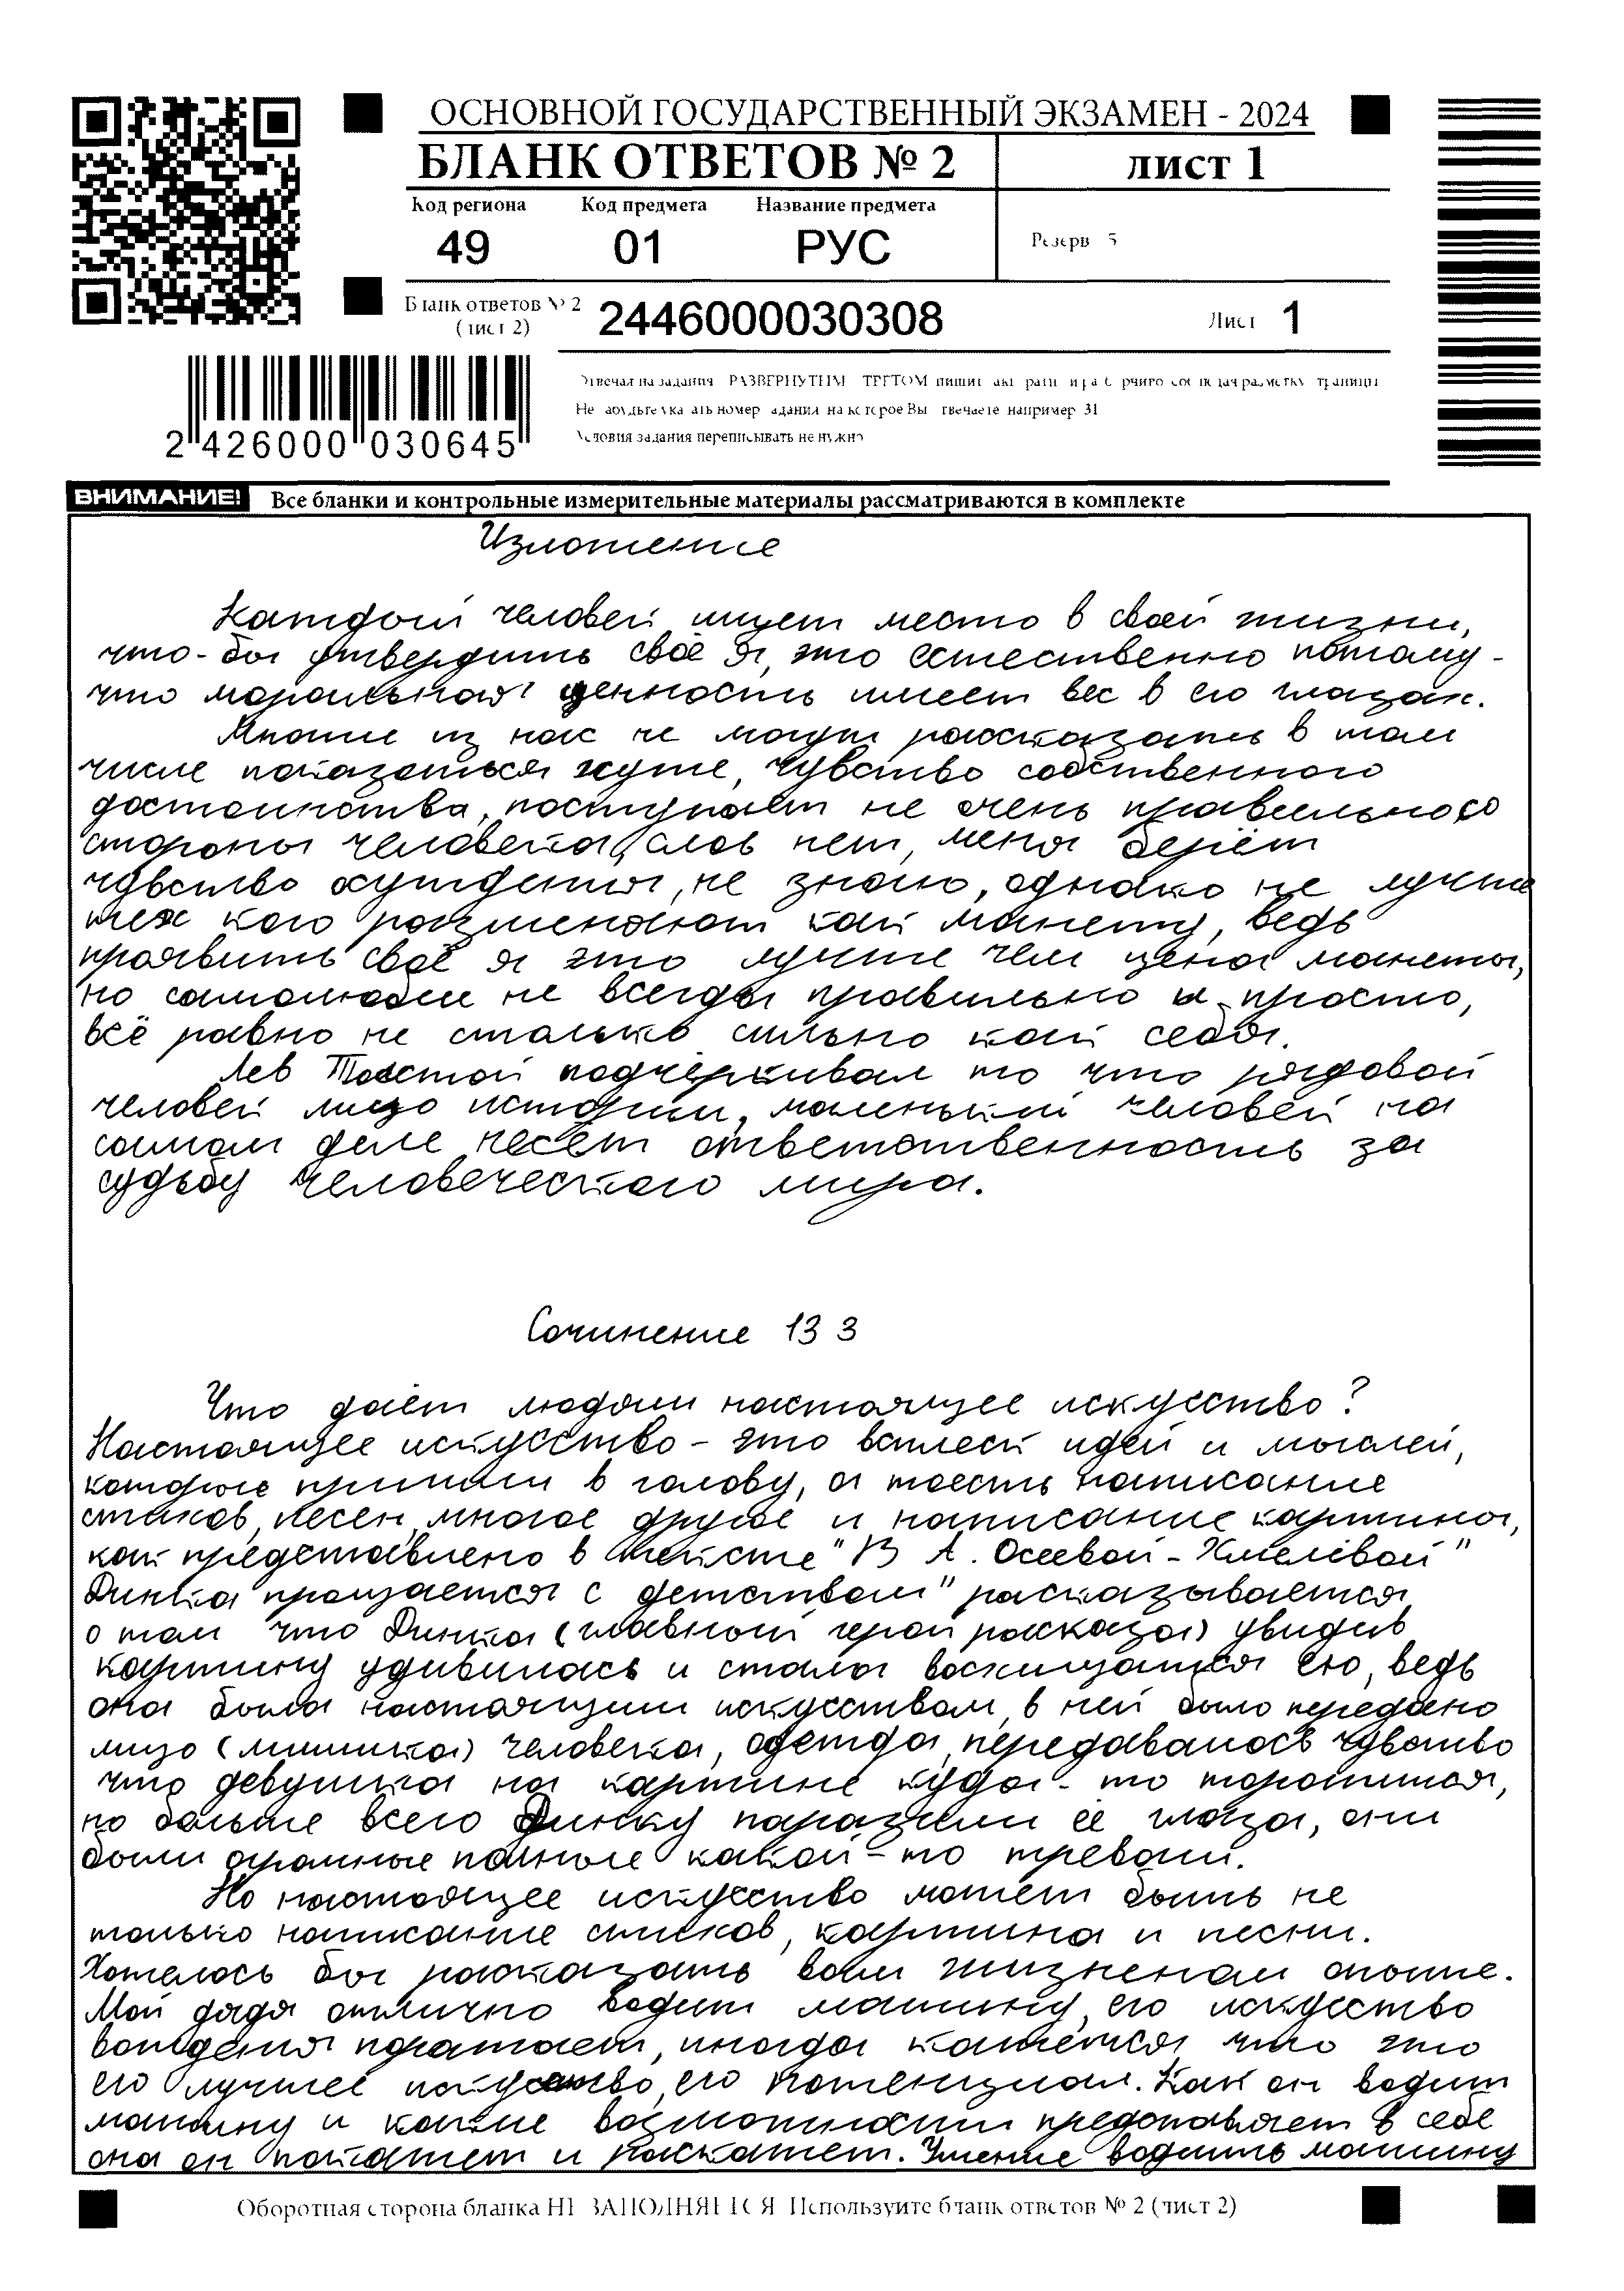 ОСНОВНОЙ ГОСУДАРСТВЕННЫЙ ЭКЗАМЕН - 2024
БЛАНК ОТВЕТОВ № 2
лист 1
Код региона Код предмета Название предмета
49 01 РУС
Резерв 5
Бланк ответов № 2
(лист 2)
2446000030308
Лист 1
2 426000 030645
Не забудьте указать номер задания на которое Вы отвечаете например 31
Условия задания переписывать не нужно
ВНИМАНИЕ! Все бланки и контрольные измерительные материалы рассматриваются в комплекте
Изложение
Каждый человек ищет место в своей жизни,
что-бы утвердить своё я, это естественно потому-
что моральная ценность имеет вес в его глазах.
Многие из нас не могут рассказать в том
числе показаться хуже, чувство собственного
достоинства, поступает не очень правильно со
стороны человека, слов нет, меня берёт
чувство осуждения, не знаю, однако не лучше
тех кого разменяют как монету, ведь
проявить своё я это лучше чем цена монеты,
но самолюбие не всегда правильно и просто,
всё равно не столько сильно как себя.
Лев Толстой подчёркивал то что рядовой
человек лицо истории, маленький человек на
самом деле несёт ответственность за
судьбу человеческого мира.
Сочинение 13 3
Что даёт людям настоящее искусство?
Настоящее искусство - это всплеск идей и мыслей,
которые пришли в голову, а тоесть написание
стихов, песен, многое другое и написание картины,
как представлено в тексте "В А. Осеевой-Хмелёвой"
Динка прощается с детством" расказывается
о том что Динка (главный герой рассказа) увидев
картину удивилась и стала восхищаться ею, ведь
она была настоящим искусством, в ней было передано
лицо (мимика) человека, одежда, передавалось чувство
что девушка на картине куда-то торопится,
но больше всего Динку поразили её глаза, они
были огромные полные какой-то тревоги.
Но настоящее искусство может быть не
только написание стихов, картина и песни.
Хотелось бы рассказать вам жизненом опыте.
Мой дядя отлично водит машину, его искусство
вождения поражает, иногда кажется что это
его лучшее искусство, его потенциал. Как он водит
машину и какие возможности предоставляет в себе
она он покажет и расскажет. Умение водить машину
Оборотная сторона бланка НЕ ЗАПОЛНЯЕТСЯ Используйте бланк ответов № 2 (лист 2)